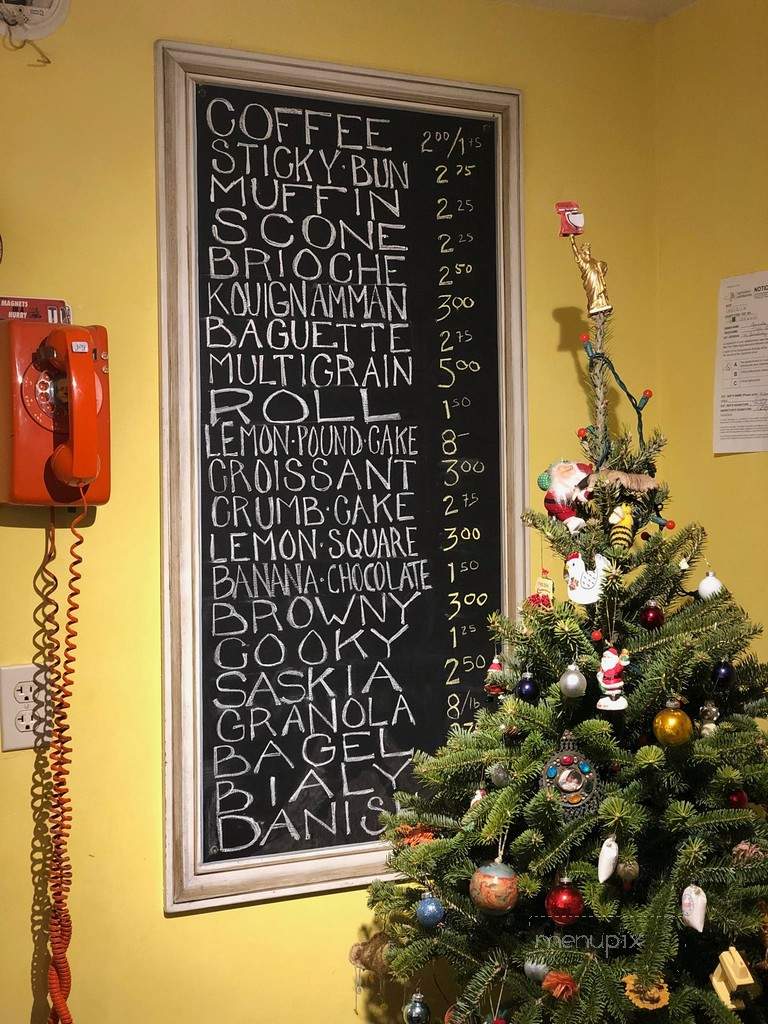 COFFEE 2 00/1 75
STICKY·BUN 2 75
MUFFIN 2 25
SCONE 2 25
BRIOCHE 2 50
KOUIGNAMMAN 3 00
BAGUETTE 2 75
MULTIGRAIN 5 00
ROLL 1 50
LEMON·POUND·CAKE 8-
CROISSANT 3 00
CRUMB·CAKE 2 75
LEMON·SQUARE 3 00
BANANA·CHOCOLATE 1 50
BROWNY 3 00
COOKY 1 25
SASKIA 2 50
GRANOLA 8/lb
BAGEL
BIALY
DANIS
MAGNETS
HURRY
NOTIC
A
B
C
menupix